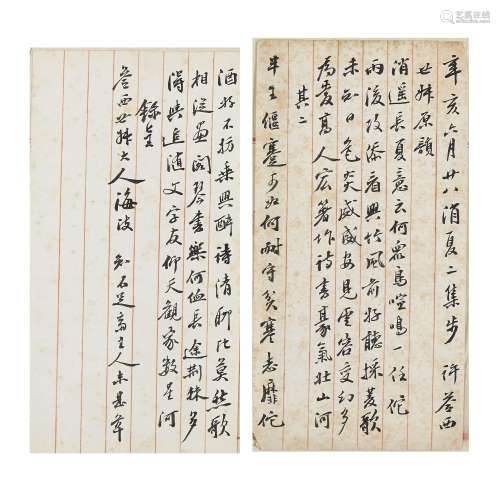 辛亥六月廿八消夏二集步 許 西
世 原韻
消遥長夏意云何 鳥喧鳴一任佗
雨後 看興竹風前好聽採菱歌
未知日色炎威盛安見雲容变幻多
為愛高人宏箸作詩書豪氣壯山河
其二
半生偃蹇 如何耐守貧寒志靡佗
酒好不妨乘興醉詩清聊比莫愁歌
相從画閣琴書樂何 長途荆棘多
得與追随文字友仰天觀象数星河
錄呈
西世 大人海政 知不足斋主人未是草